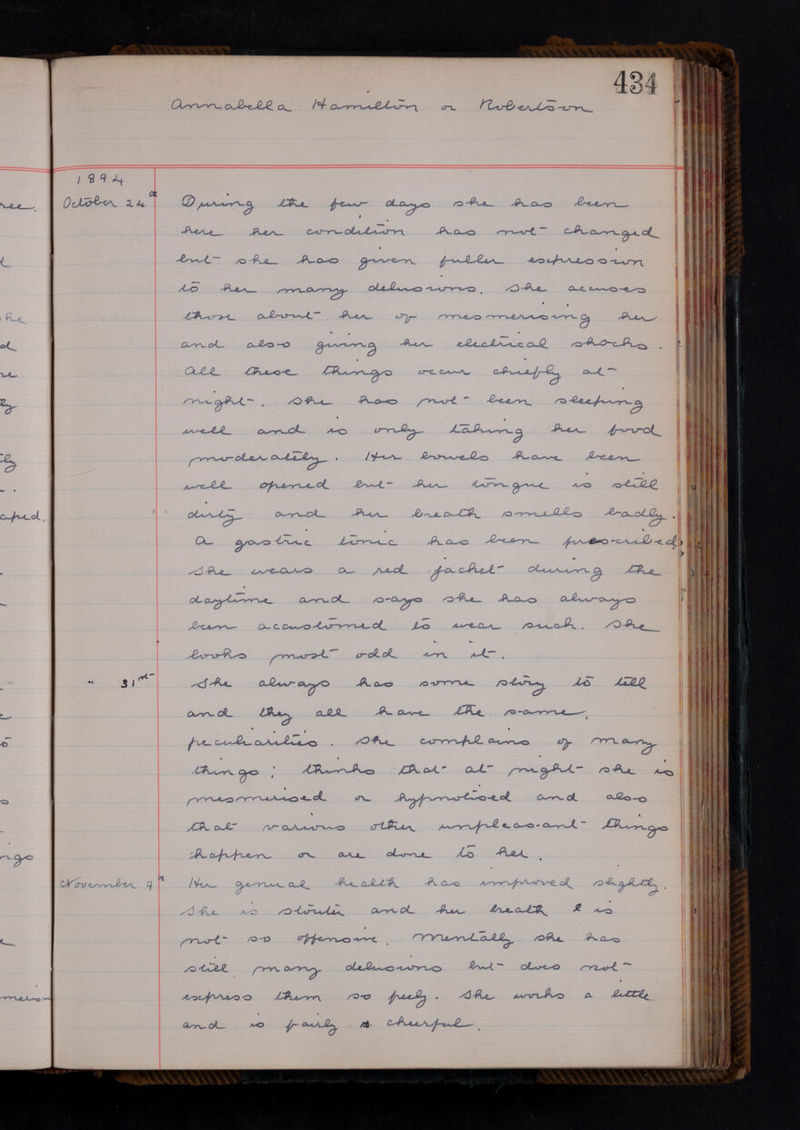 434
Annabella Hamilton or Robertson
1894
October 24th During the few days she has been
here her condition has not changed
but she has given fuller expression
to her many delusions. She accuses
those about her of mesmerising her
and also giving her electrical shocks.
All these things occur chiefly at
night. She has not been sleeping
well and is only taking her food
moderately. Her bowels have been
well opened but her tongue is still
dirty and her breath smells badly.
A gastric tonic has been prescribed,
She wears a red jacket during the
daytime and says she has always
been accustomed to wear such. She
looks most odd in it.
" 31st She always has some story to tell
and they all have the same,
peculiarities. She complains of many
things; thinks that at night she is
mesmerised or hypnotised and also
that various other unpleasant things
happen or are done to her.
November 9th Her general health has improved slightly.
She is stouter and her breath is
not so offensive. Mentally she has
still many delusions but does not
express them so freely. She works a little
and is fairly cheerful.